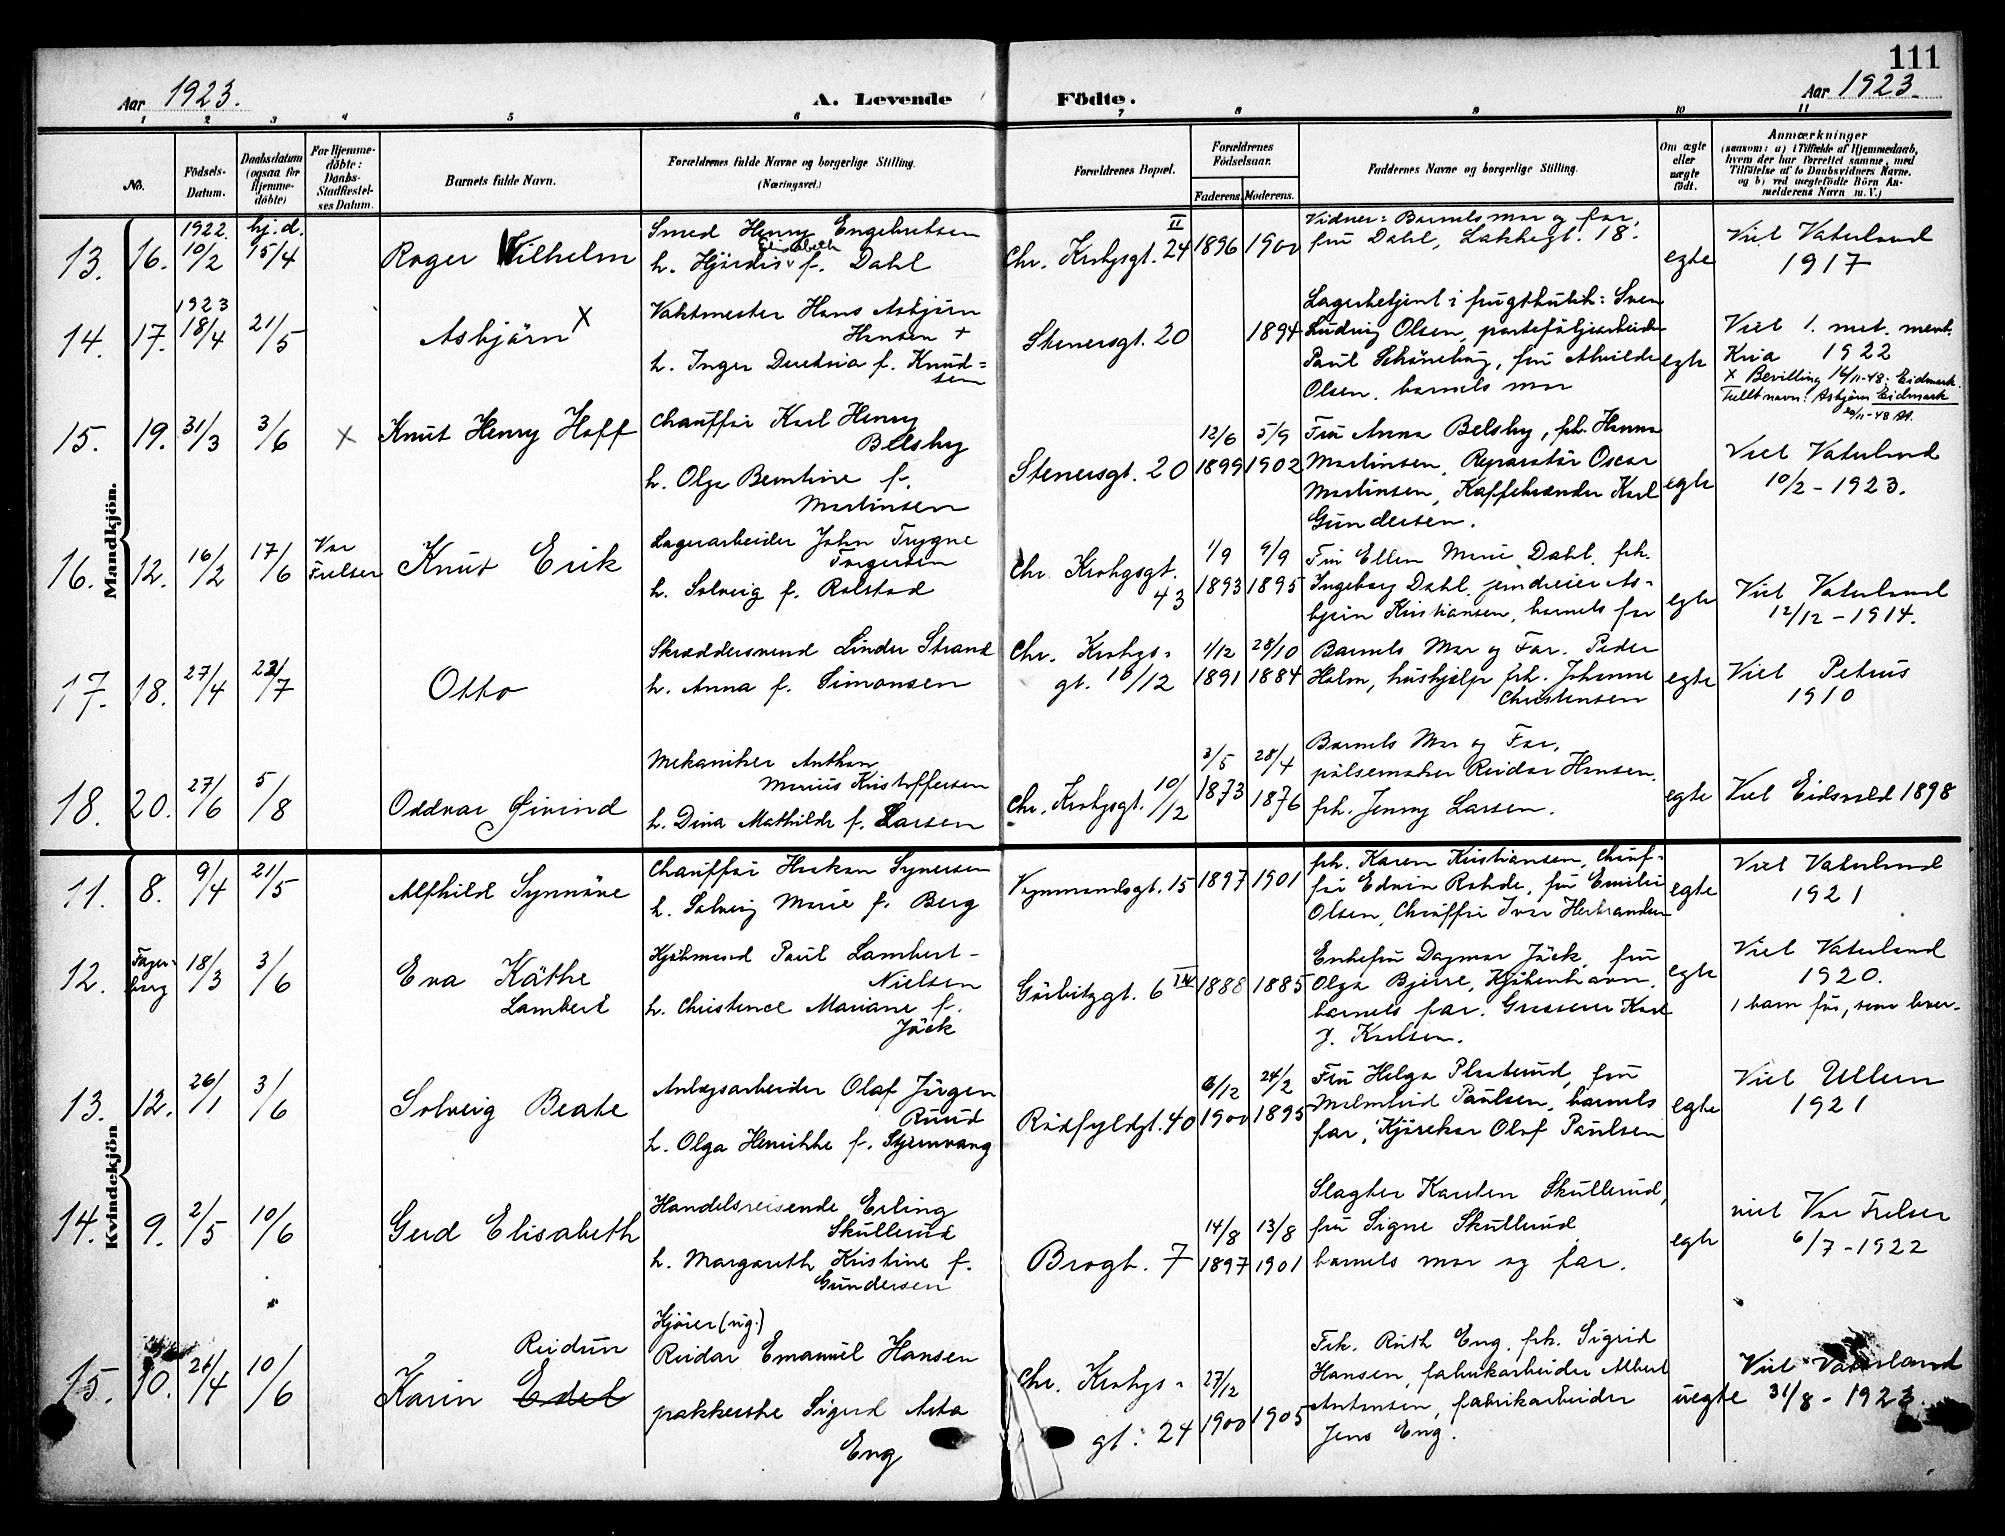 111
Aar 1923.
A. Levende
Födte.
Aar 1923.
1 2 3 4 5 6 7 8 9 10 11
No.
Födsels-
Datum.
Daabsdatum
(ogsaa för
Hjemme-
döbte)
For Hjemme-
döbte:
Daabs-
Stadfæstel-
ses Datum.
Barnets fulde Navn.
Forældrenes fulde Navne og borgerlige Stilling.
(Næringsvei.)
Forældrenes Bopæl.
Forældrenes
Födselsaar.
Faderens. Moderens.
Faddernes Navne og borgerlige Stilling.
Om ægte
eller
uægte
födt.
Anmærkninger
(saasom: a) i Tilfælde af Hjemmedaab,
hvem der har forrettet samme, med
Tilföielse af to Daabsvidners Navne.
og b) ved uægtefödte Börn An-
melderens Navn m. V.)
Mandkjön.
13. 16. 1922 10/2 hj.d. 15/4
Roger Wilhelm
Smed Henry Engebretsen
h. Hjørdis Elisabeth f. Dahl
Chr. Krohgsgt. 24 II
1896 1900
Vidner: Barnets mor og far,
fru Dahl, Lakkegt. 18.
egte
Viet Vaterland
1917
14. 17. 1923 18/4 21/5
Asbjörn x
Vaktmester Hans Asbjörn
Hansen +
h. Inger Derthia f. Knud-
sen
Stenersgt. 20
1894
Lagerbetjent i frugtbutik: Sven
Ludvig Olsen, porteföljearbeider
Paul, fru Alvilde
Olsen, barnets mor
egte
Viet 1. met. ment.
Kria 1922
x Bevilling 16/11-48: Eidmark.
Fullt navn: Asbjörn Eidmark
15. 19. 31/3 3/6 x
Knut Henry Hoff
Chauffør Karl Henry
Belsby
h. Olga Berntine f.
Martinsen
Stenersgt. 20
12/6 1899 5/9 1902
Fru Anna Belsby, frk. Hanna
Martinsen, Reparatör Oscar
Martinsen, Kaffebrænder Karl
Gundersen.
egte
Viet Vaterland
10/2 - 1923.
16. 12. 16/2 17/6
Vor
Frelser
Knut Erik
Lagerarbeider John Trygve
Torgersen
h. Solveig f. Rolstad
Chr. Krohgsgt.
43
1/9 1893 9/9 1895
Fru Ellen Marie Dahl, frk.
Ingeborg Dahl, jerndreier As-
bjørn Kristiansen, barnets far
egte
Viet Vaterland
12/12 - 1914.
17. 18. 27/4 22/7
Otto
Skræddersvend Linder Strand
h. Anna f. Simonsen
Chr. Krohgs-
gt. 10/12
1/12 1891 28/10 1884
Barnets Mor og Far. Peder
Holm, hushjelp frk. Johanne
Christensen
egte
Viet Petrus
1910
18. 20. 27/6 5/8
Oddvar Øivind
Mekaniker Anthon
Marius Kristoffersen
h. Dina Mathilde f. Larsen
Chr. Krohgsgt. 10/12
3/5 1873 28/4 1876
Barnets Mor og Far,
pölsemaker Reidar Hansen,
frk. Jenny Larsen.
egte
Viet Eidsvold 1898
Kvindekjön
11. 8. 9/4 21/5
Alfhild Synnöve
Chauffør Haakon Syversen
h. Solveig Marie f. Berg
Vognmandsgt. 15
1897 1901
frk. Karen Kristiansen, Chauf-
før Edvin Rohde, fru Emilie
Olsen, Chauffør Ivar Herbrandsen
egte
Viet Vaterland
1921
12. Fager-
borg 18/3 3/6
Eva Käthe
Lambert
Kjöbmand Paul Lambert-
Nielsen
h. Christence Mariane f.
Jäck
Görbitzgt. 6 IV
1888 1885
Enkefru Dagmar Jäck, fru
Olga Bjerre, Kjöbenhavn,
barnets far. Grosserer Karl
J. Karlsen.
egte
Viet Vaterland
1920.
1 barn før, som lever.
13. 12. 26/1 3/6
Solveig Beate
Anlægsarbeider Olaf Jörgen
Ruud
h. Olga Henrikke f. Styrmvang
Rödfyldgt. 40
6/12 1900 24/2 1895
Fru Helga Platerud, fru
Paulsen, barnets
far, Kjörekar Olaf Paulsen
egte
Viet Ullern
1921
14. 9. 2/5 10/6
Gerd Elisabeth
Handelsreisende Erling
Skullerud
h. Margareth Kristine f.
Gundersen
Brogt. 7
14/8 1897 13/8 1901
Slagter Karsten Skullerud,
fru Signe Skullerud
barnets mor og far.
egte
viet Vor Frelser
6/7 - 1922
15. 10. 26/4 10/6
Reidun
Karin Edel
Kjörer (ug.)
Reidar Emanuel Hansen
pakkerske Sigrid Asta
Eng
Chr. Krohgs-
gt. 24
27/12 1900 1905
Frk. Ruth Eng, frk. Sigrid
Hansen, fabrikarbeider Albert
Antonsen, fabrikarbeider
Jens Eng.
uegte
Viet Vaterland
31/8 - 1923.